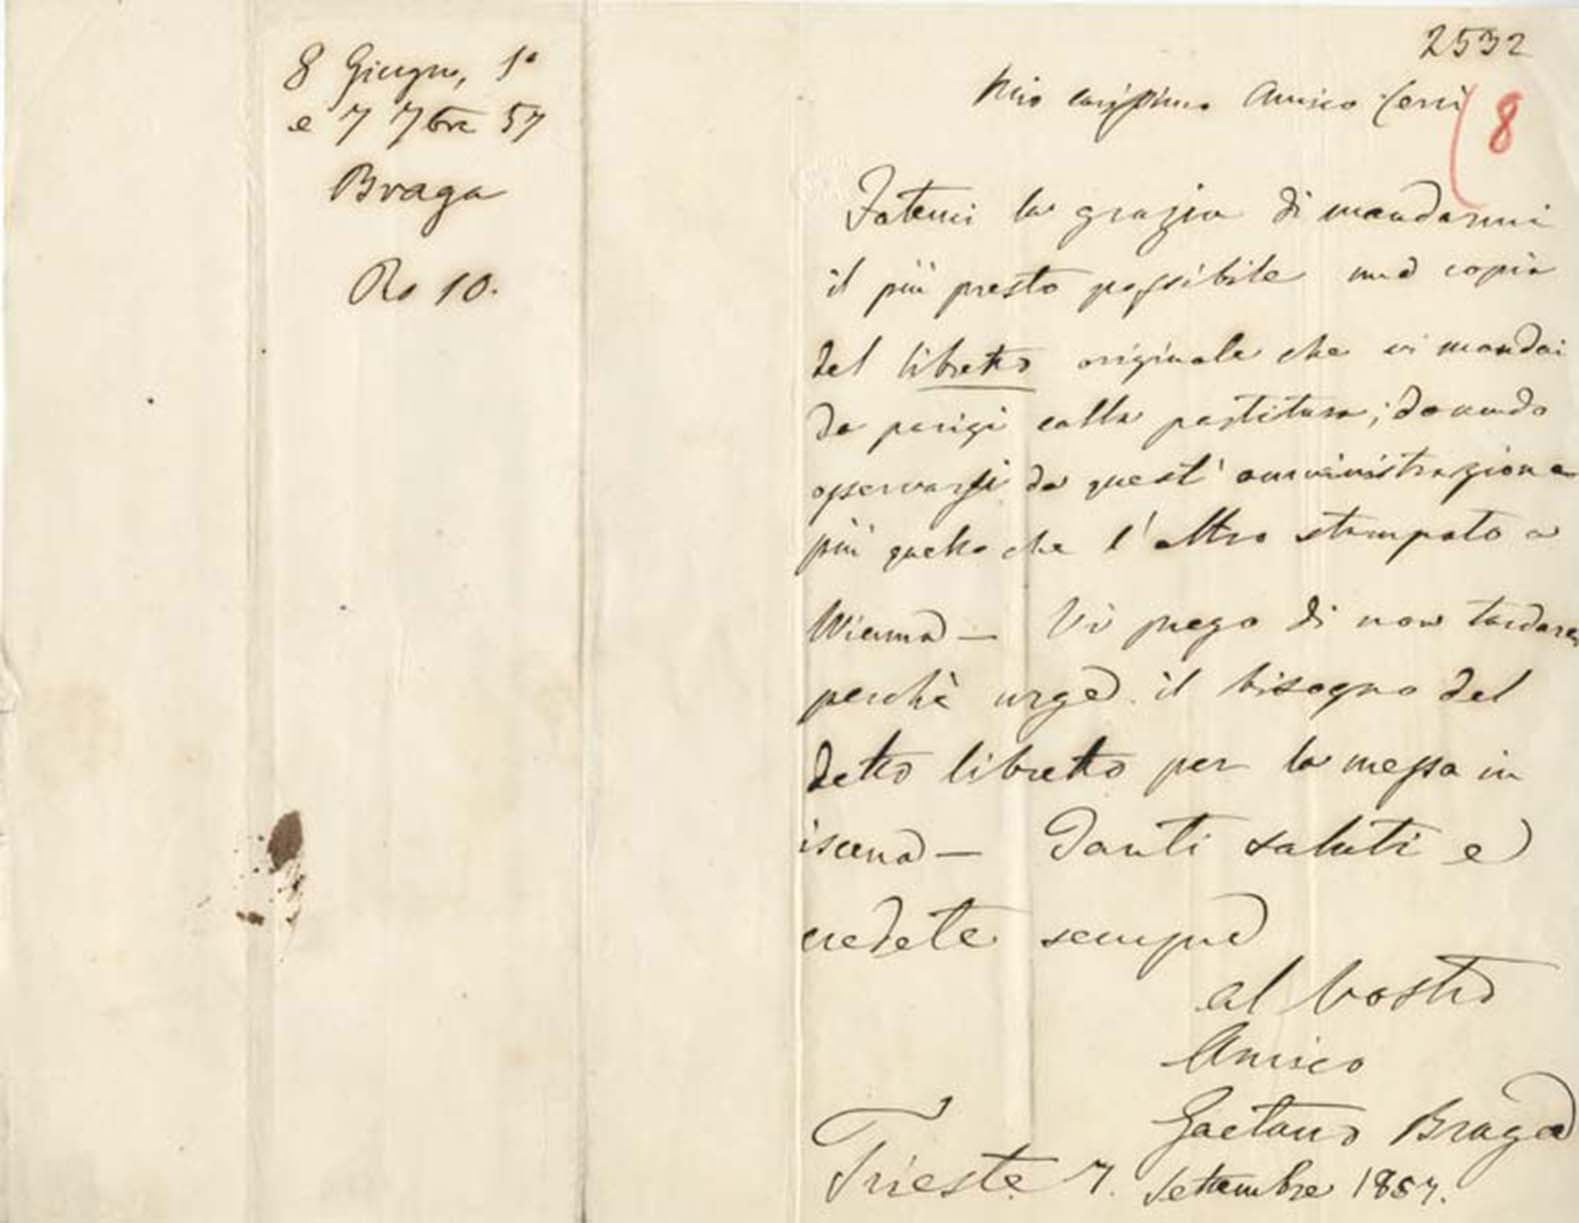 8 Giugno, 1°
e 7 7bre 57
Braga
Ro 10.
2532
Mio carissimo Amico Cerri
8
Fatemi la grazia di mandarmi
il più presto possibile una copia
del libretto originale che vi mandai
da parigi colla partitura; dovendo
osservarsi da quest' amministrazione
più quello che l'altro stampato a
Wienna — Vi prego di non tardare
perchè urge il bisogno del
detto libretto per la messa in
iscena — Tanti saluti e
credete sempre
al vostro
Amico
Gaetano Braga
Trieste 7. Settembre 1857.